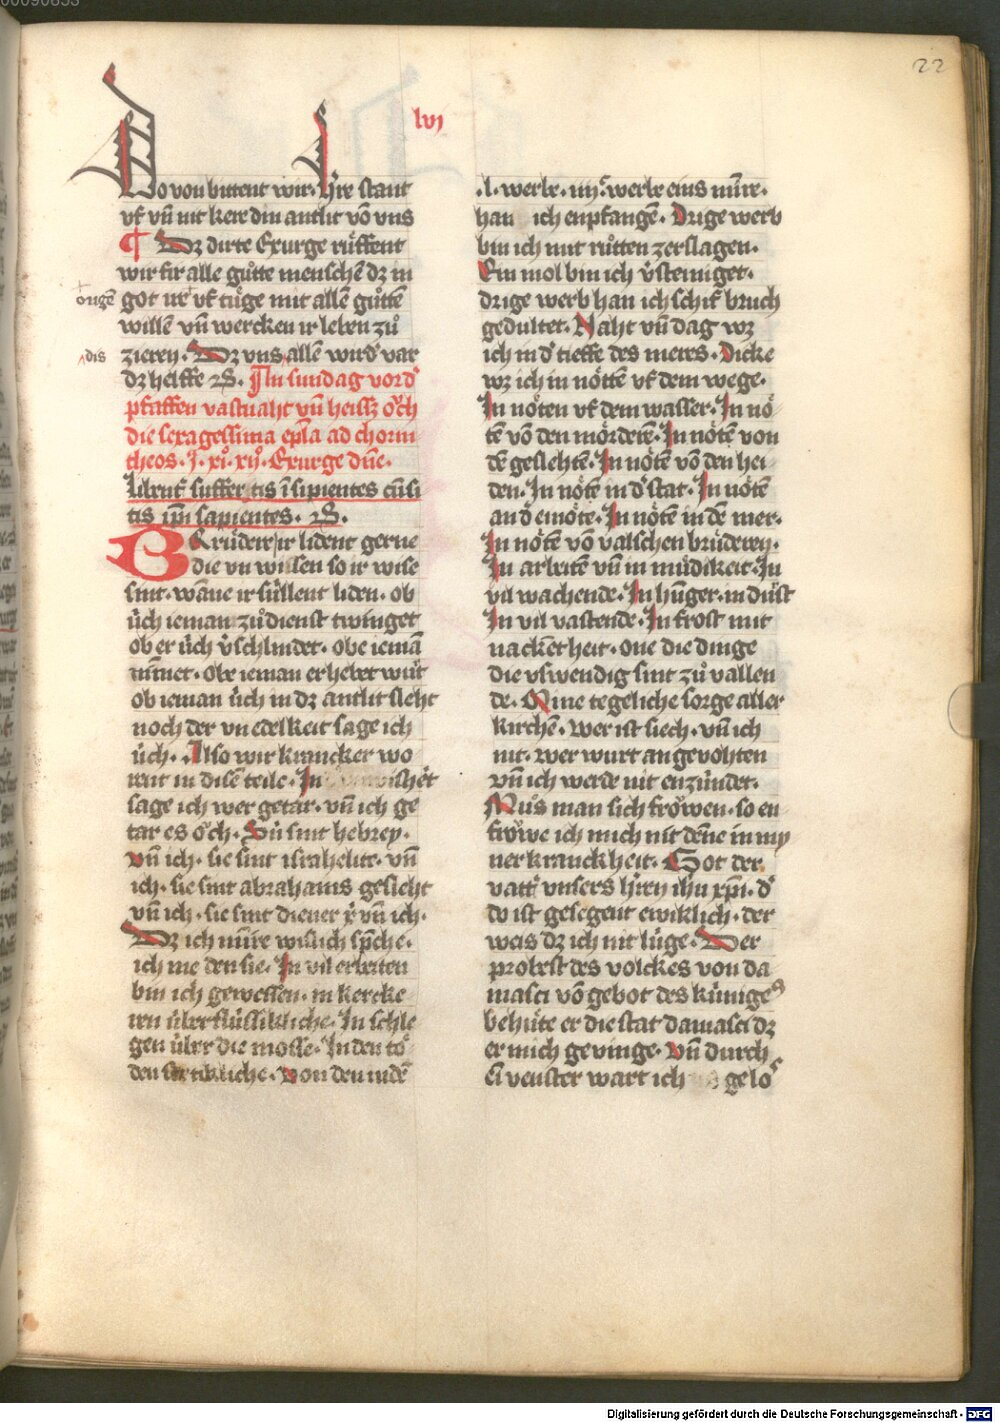 22
lvj
Do von bittent wir· Hre stant
vf vn̄ nit kere din antlit vō vns
¶ Dz dirte Exurge rüffent
wir fir alle gůtte menschē dz in
ougē got ... vf tüge mit allē gůttē
willē vn̄ wercken ir leben zů
dis zieren· Dz vns allē wird var
dz helffe ·S· An sundag vor d
pfaffen vastnaht vn̄ heissz ŏch
die sexagessima epl̄a ad chorin
theos· J· xj· xij· Exurge dn̄e·
Libent suffertis īsipientes cūsi
tis ip̄i sapientes· ·S·
Brüder ir lident gerne
die vn wissen so ir wise
sint· wāne ir süllent liden· ob
üch ieman zů dienst twinget
ob er üch v̓schlindet· obe iemā
nimet· obe ieman erhebet wirt
ob ieman üch in dz antlit sleht
noch der vn edelkeit sage ich
üch· Also wir krancker wo
rent in disē teile· In ... wishēt
sage ich wer getar· vn̄ ich ge
tar es ŏch· Sü sint hebrey·
vn̄ ich· sie sint israhelite· vn̄
ich· sie sint abrahams gesleht
vn̄ ich· sie sint diener x̄p̄i vn̄ ich·
Dz ich minre wislich sp̄che·
ich me den sie· In vil erbeiten
bin ich gewessen· in kercke
ren überflüssikliche· In schle
gen über die mosse· In den tö
den ... Von den iudē
·l· werbe· iiij· werbe eins min̄re·
han ich enpfangē· Drige werb
bin ich mit růtten zerslagen·
Ein mol bin ich v̓steiniget·
drige werb han ich schif bruch
gedultet· Naht vn̄ dag wz
ich in d̓ tieffe des meres· Dicke
wz ich in nöttē vf dem wege·
In nöten vf dem wasser· In nö
tē vō den mörderē· In nötē von
dē geslehtē· In nötē vō den hei
den· In nötē in d̓ stat· In nötē
an d̓ einöte· In nötē in dē mer·
In nötē vō valschen brüderen·
In arbeitē vn̄ in müdikeit· In
vil wachende· In hūger· in dürst
In vil vastende· In frost mit
nacketheit· one die dinge
die vswendig sint zů vallen
de· Mine tegeliche sorge aller
kirchē· Wer ist siech· vn̄ ich
nit· wer wurt angevohten
vn̄ ich werde nit enzündet·
Mus man sich fröwen· so en
fröwe ich mich nit dēne in my
ner kranckheit· Got der
vatt̓ vnsers h̓ren ih̄u xp̄i· d̓
do ist gelegent ewiklich· der
weis dz ich nit lüge· Der
probest des volckes von da
masci vō gebot des küniges
behüte er die stat damasci dz
er mich gevinge· vn̄ durch
ei venster wart ich ... gelos
Digitalisierung gefördert durch die Deutsche Forschungsgemeinschaft - DFG